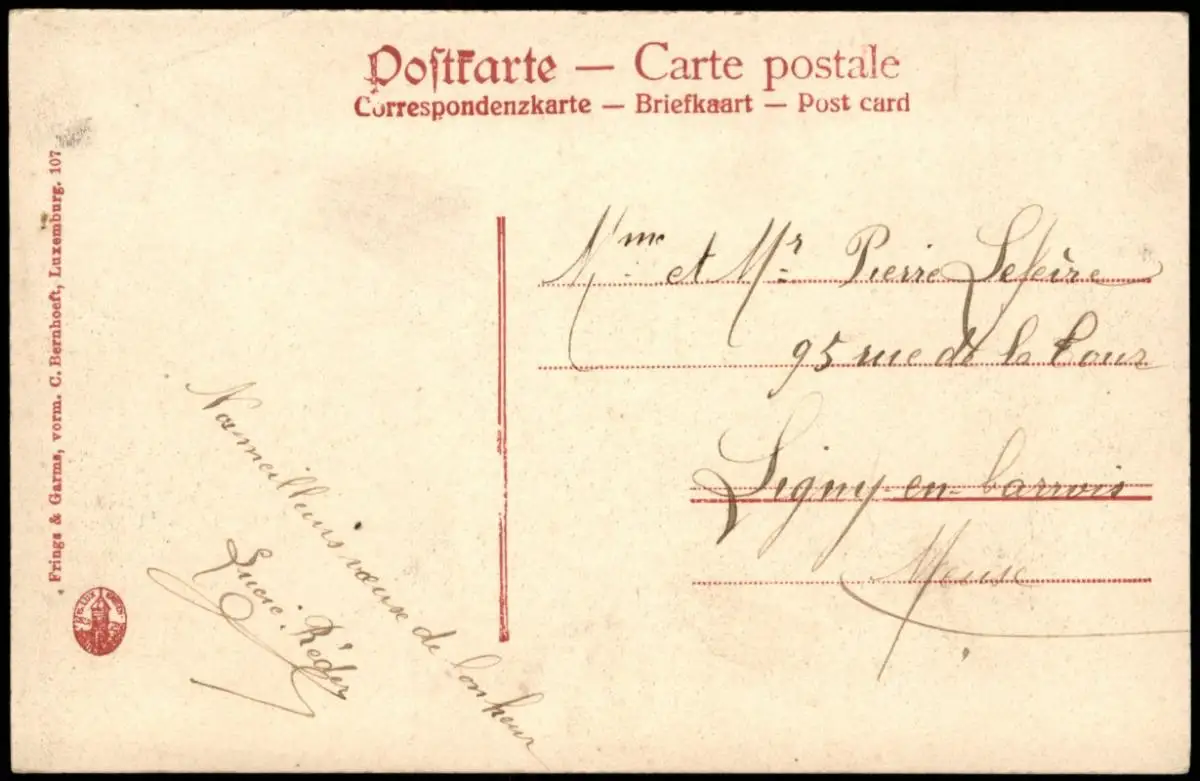 Postkarte — Carte postale
Correspondenzkarte — Briefkaart — Post card
Frings & Garms, vorm. C. Bernhoeft, Luxemburg. 107
Mme et Mr Pierre Lefèvre
95 rue de la Tour
Ligny-en-barrois
Meuse
Nos meilleurs vœux de bonheur
Lucie Réder